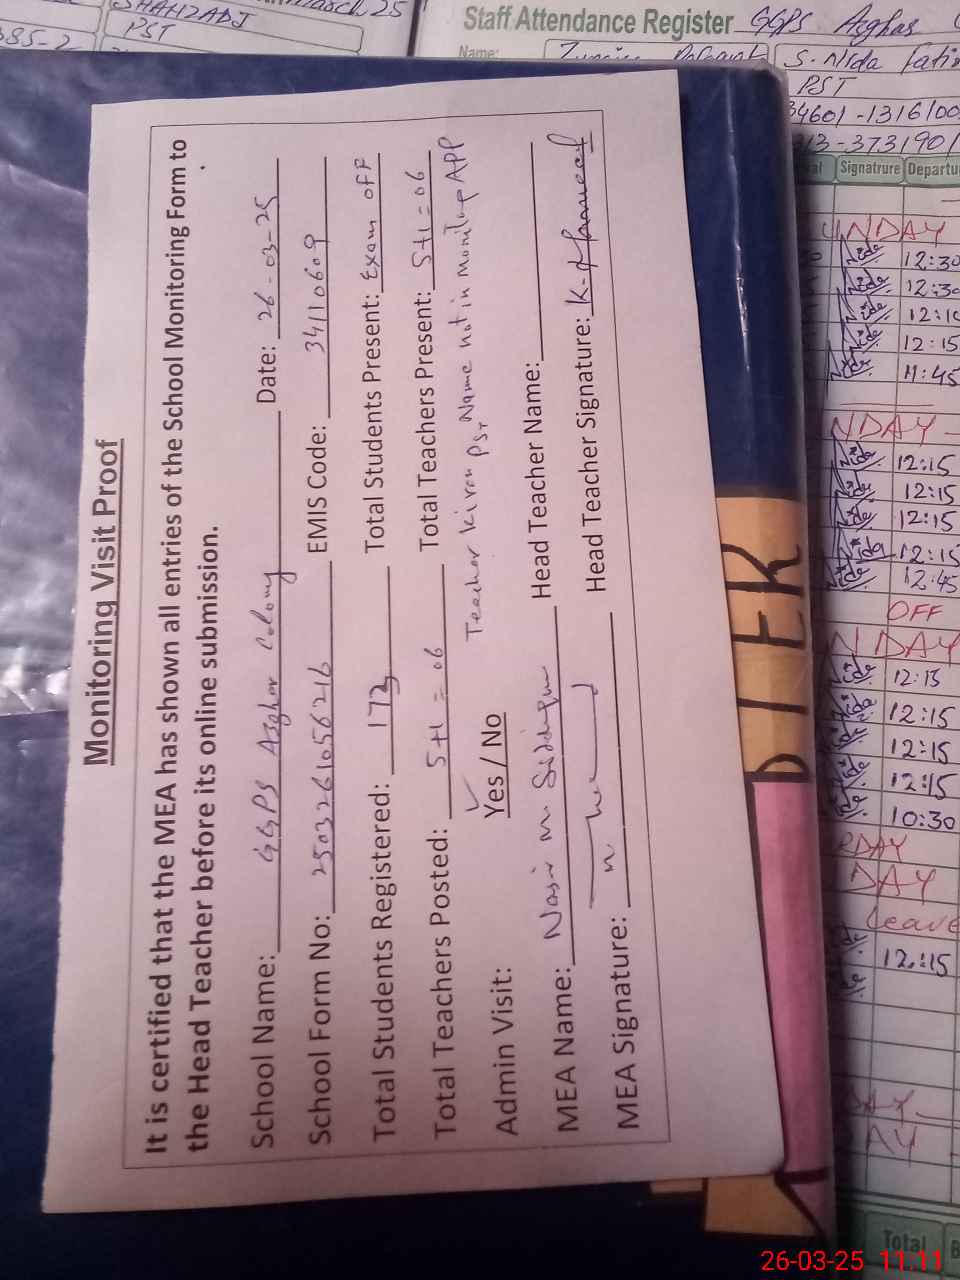 Monitoring Visit Proof
It is certified that the MEA has shown all entries of the School Monitoring Form to
the Head Teacher before its online submission.
School Name: GGPS Asghar Colony Date: 26-03-25
School Form No: 250326105626216 EMIS Code: 34110609
Total Students Registered: 173 Total Students Present: Exam OFF
Total Teachers Posted: 5+1 = 06 Total Teachers Present: 5+1 = 06
Teacher Kiran PST Name not in monitoring APP
Admin Visit: Yes / No
MEA Name: Nasir m Head Teacher Name:
MEA Signature: Head Teacher Signature:
March 25
SHAHZADI
PST
385-2
Staff Attendance Register GGPS Asghar
Name: S. Nida Fati
PST
34601-131610
313-373190
Signatrure Departu
UNDAY
Nida 12:30
Nida 12:30
Nida 12:10
Nida 12:15
Nida 11:45
NDAY
Nida 12:15
Nida 12:15
Nida 12:15
Nida 12:15
Nida 12:45
OFF
NDAY
Nida 12:15
Nida 12:15
Nida 12:15
Nida 12:15
Nida 10:30
RDAY
DAY
Leave
Nida 12:15
Nida
DAY
AY
Total
26-03-25 11:11